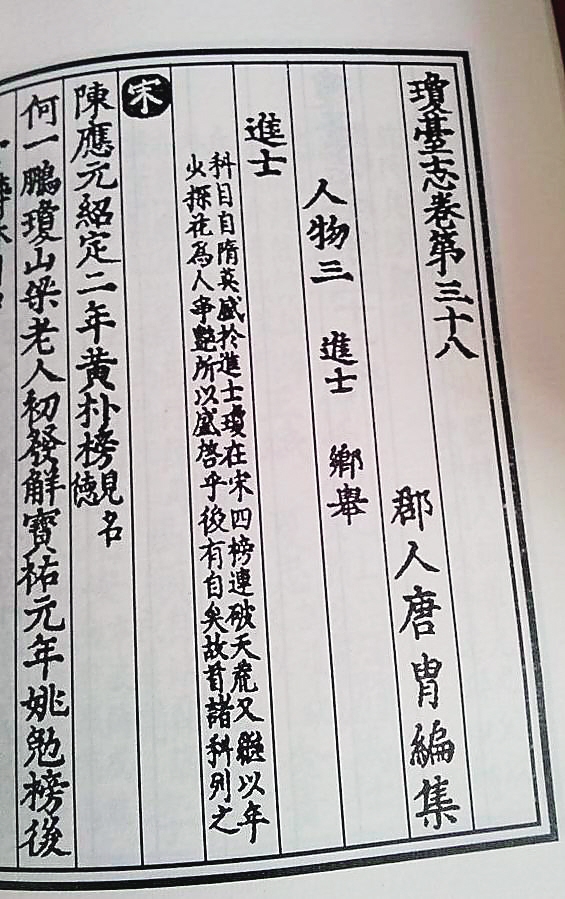 瓊臺志卷第三十八
郡人唐冑編集
人物三 進士 鄉舉
進士
科目自隋英盛於進士瓊在宋四榜連破天荒又繼以年
少探花為人爭艷所以盛啓乎後有自矣故首諸科列之
宋
陳應元紹定二年黃朴榜見名德
何一鵬瓊山梁老人初發解寶祐元年姚勉榜後